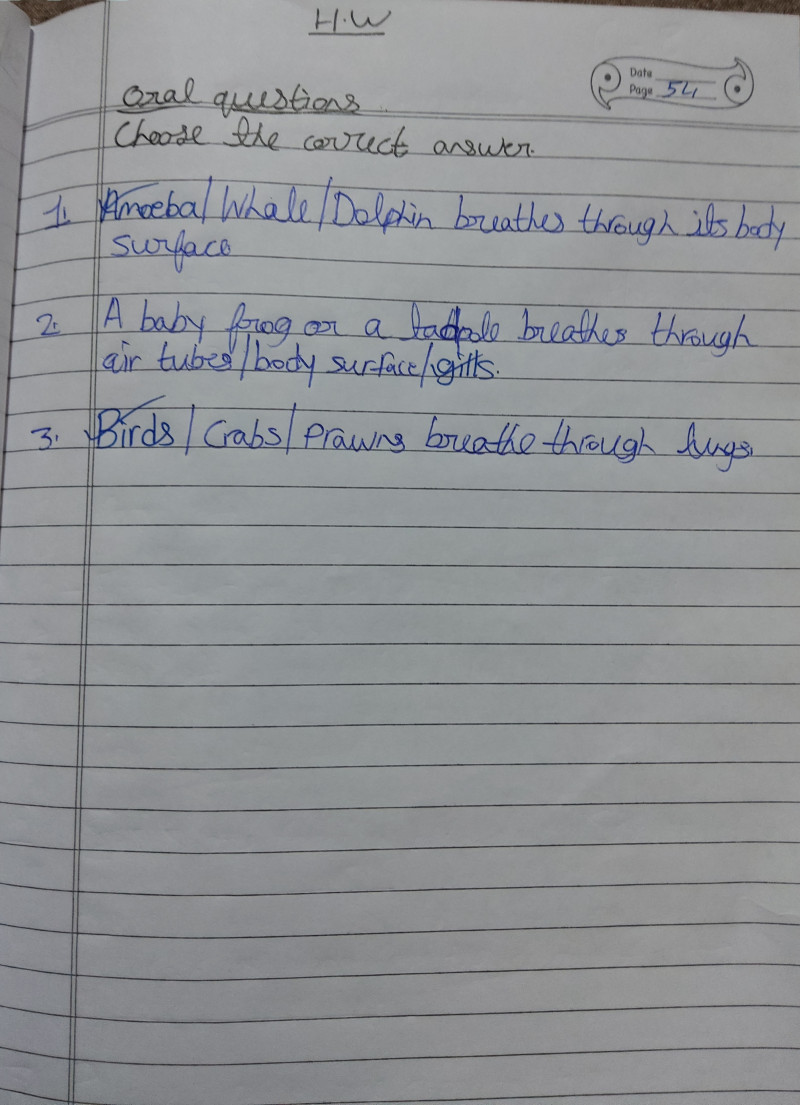 H.W
Date
Page 54
Oral questions
Choose the correct answer.
1. Amoeba/Whale/Dolphin breathes through its body
surface
2. A baby frog or a tadpole breathes through
air tubes/body surface/gills.
3. Birds/Crabs/Prawns breathe through lugs.